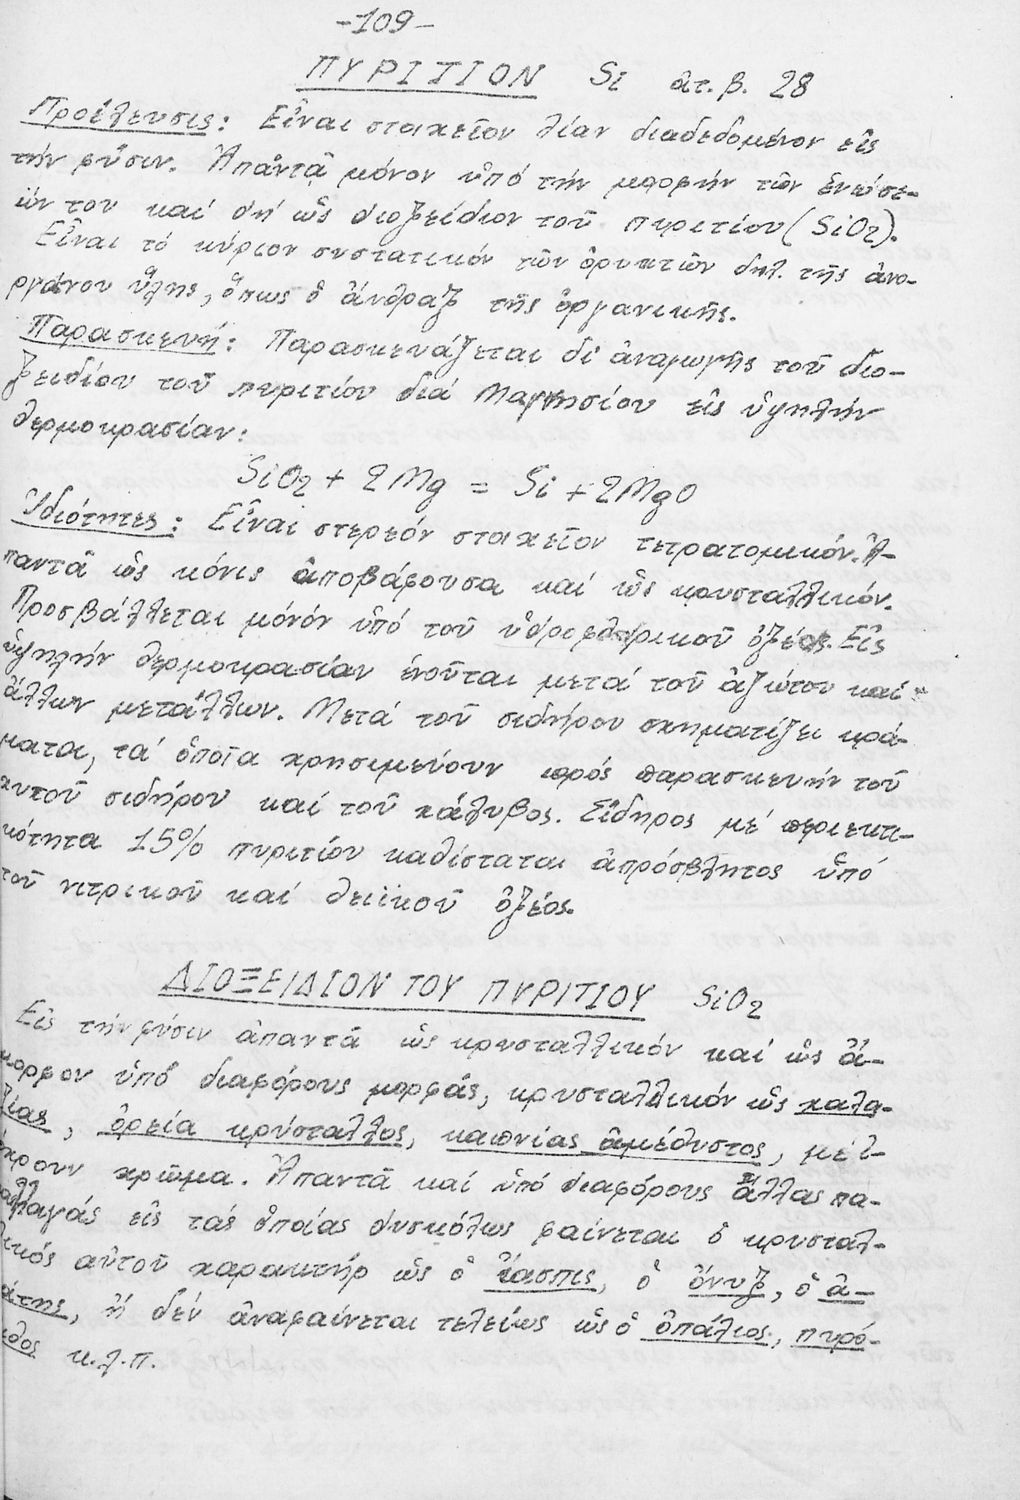 -109-
ΠΥΡΙΤΙΟΝ Si ἀτ. β. 28
Προέλευσις: Εἶναι στοιχεῖον λίαν διαδεδομένον εἰς
τήν φύσιν. Ἀπαντᾷ μόνον ὑπό τήν μορφήν τῶν ἑνώσε-
ών του καί δή ὡς διοξείδιον τοῦ πυριτίου (SiO2).
Εἶναι τό κύριον συστατικόν τῶν ὀρυκτῶν δηλ. τῆς ἀνο-
ργάνου ὕλης, ὅπως ὁ ἄνθραξ τῆς ὀργανικῆς.
Παρασκευή: Παρασκευάζεται δι' ἀναγωγῆς τοῦ διο-
ξειδίου τοῦ πυριτίου διά Μαγνησίου εἰς ὑψηλήν
θερμοκρασίαν:
SiO2 + 2Mg = Si + 2MgO
Ἰδιότητες: Εἶναι στερεόν στοιχεῖον τετρατομικόν. Ἀ-
παντᾶ ὡς κόνις ἀποβάφουσα καί ὡς κρυσταλλικόν.
Προσβάλλεται μόνον ὑπό τοῦ ὑδροφθορικοῦ ὀξέος. Εἰς
ὑψηλήν θερμοκρασίαν ἑνοῦται μετά τοῦ ἀζώτου καί
ἄλλων μετάλλων. Μετά τοῦ σιδήρου σχηματίζει κρά-
ματα, τά ὁποῖα χρησιμεύουν πρός παρασκευήν τοῦ
χυτοῦ σιδήρου καί τοῦ χάλυβος. Σίδηρος μέ περιεκτι-
κότητα 15% πυριτίου καθίσταται ἀπρόσβλητος ὑπό
τοῦ νιτρικοῦ καί θειϊκοῦ ὀξέος.
ΔΙΟΞΕΙΔΙΟΝ ΤΟΥ ΠΥΡΙΤΙΟΥ SiO2
Εἰς τήν φύσιν ἀπαντᾶ ὡς κρυσταλλικόν καί ὡς ἄ-
μορφον ὑπό διαφόρους μορφάς, κρυσταλλικόν ὡς χαλα-
ζίας, ὀρεία κρύσταλλος, καπνίας ἀμέθυστος, μέ ἰ-
χρουν χρῶμα. Ἀπαντᾶ καί ὑπό διαφόρους ἄλλας πα-
ραλλαγάς εἰς τάς ὁποίας δυσκόλως φαίνεται ὁ κρυσταλ-
λικός αὐτοῦ χαρακτήρ ὡς ὁ ἴασπις, ὁ ὄνυξ, ὁ ἀ-
χάτης, ἤ δέν ἀναφαίνεται τελείως ὡς ὁ ὀπάλιος, πυρό-
λιθος κ.λ.π.